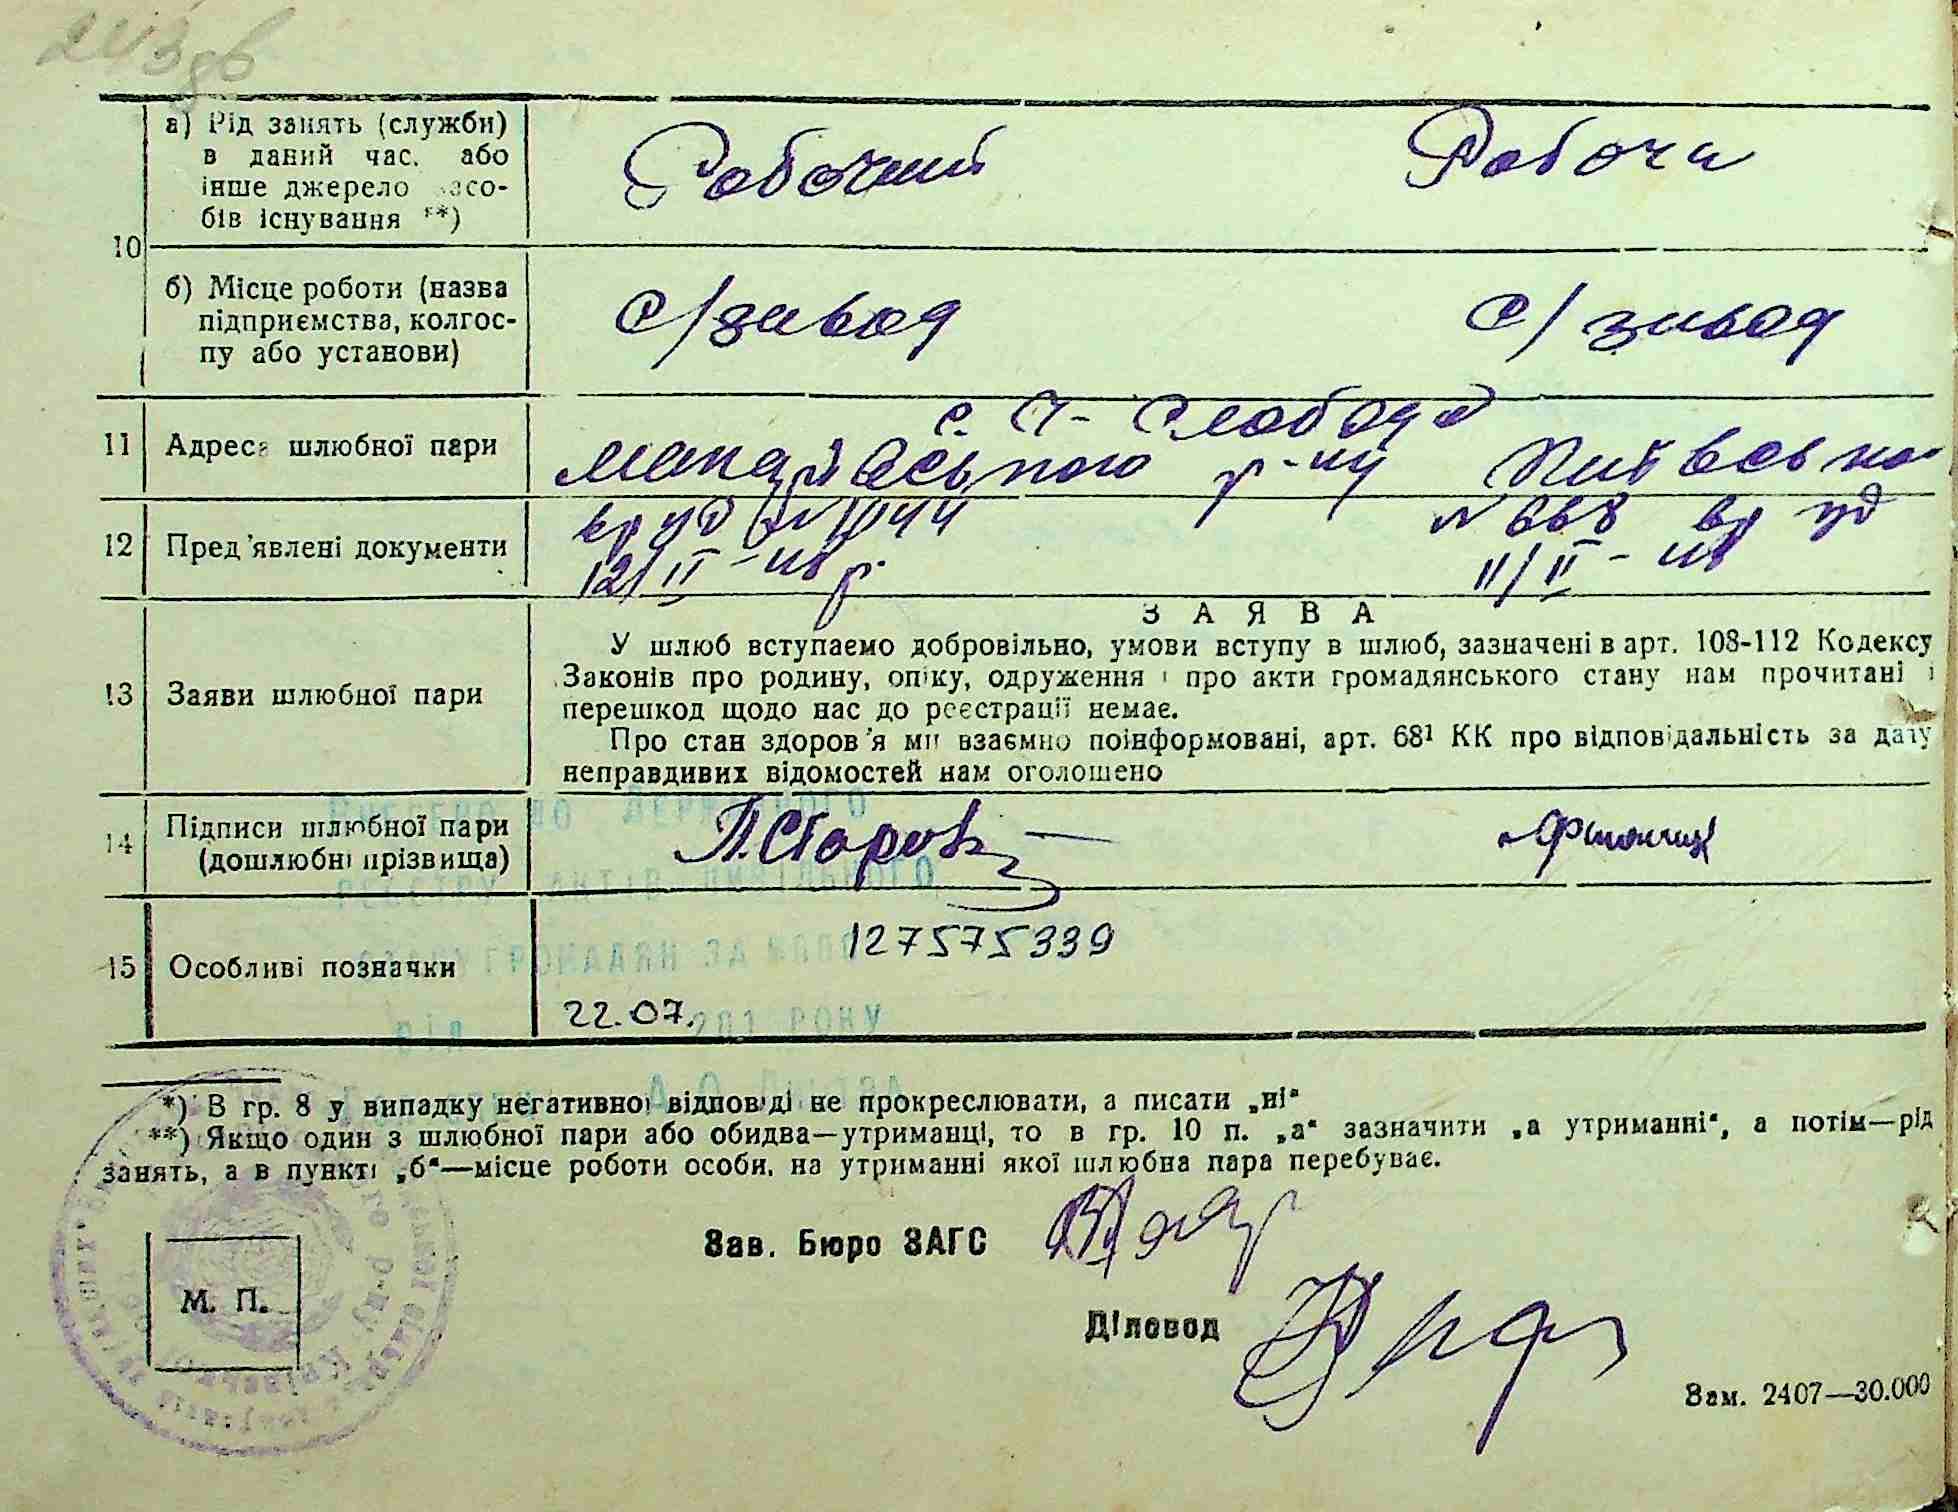 а) Рід занять (служби)
в даний час, або
інше джерело засо-
бів існування **)
Робочий
Робоча
10
б) Місце роботи (назва
підприємства, колгос-
пу або установи)
с/завод
с/завод
11
Адреса шлюбної пари
с. Слобода
р-ну
12
Пред'явлені документи
12/II
№ 668
11/II
ЗАЯВА
13
Заяви шлюбної пари
У шлюб вступаємо добровільно, умови вступу в шлюб, зазначені в арт. 108-112 Кодексу
Законів про родину, опіку, одруження і про акти громадянського стану нам прочитані і
перешкод щодо нас до реєстрації немає.
Про стан здоров'я ми взаємно поінформовані, арт. 68¹ КК про відповідальність за дачу
неправдивих відомостей нам оголошено
14
Підписи шлюбної пари
(дошлюбні прізвища)
ВНЕСЕНО ДО ДЕРЖАВНОГО
РЕЕСТРУ АКТІВ ЦИВІЛЬНОГО
15
Особливі позначки
СТАНУ ГРОМАДЯН ЗА
127575339
22.07.
ВІД 201 РОКУ
*) В гр. 8 у випадку негативної відповіді не прокреслювати, а писати „ні“
**) Якщо один з шлюбної пари або обидва—утриманці, то в гр. 10 п. „а“ зазначити „а утриманні“, а потім—рід
занять, а в пункті „б“—місце роботи особи, на утриманні якої шлюбна пара перебуває.
Зав. Бюро ЗАГС
М. П.
Діловод
Зам. 2407—30.000